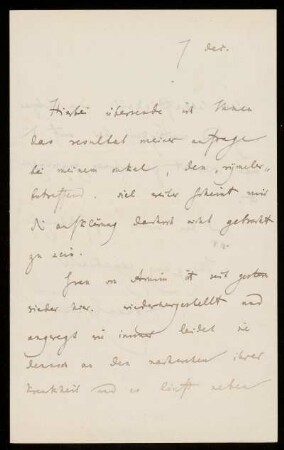 7 dec.
Hierbei übersende ich Ihnen
das resultat meiner anfrage
bei meinem onkel, den
betreffend. viel weiter scheint mir
die aufklärung dadurch nicht gebracht
zu sein.
Frau von Arnim ist seit gestern
wieder hier. wiederhergestellt und
angeregt wie immer leidet sie
dennoch an den nachwehen ihrer
krankheit und es läuft neben